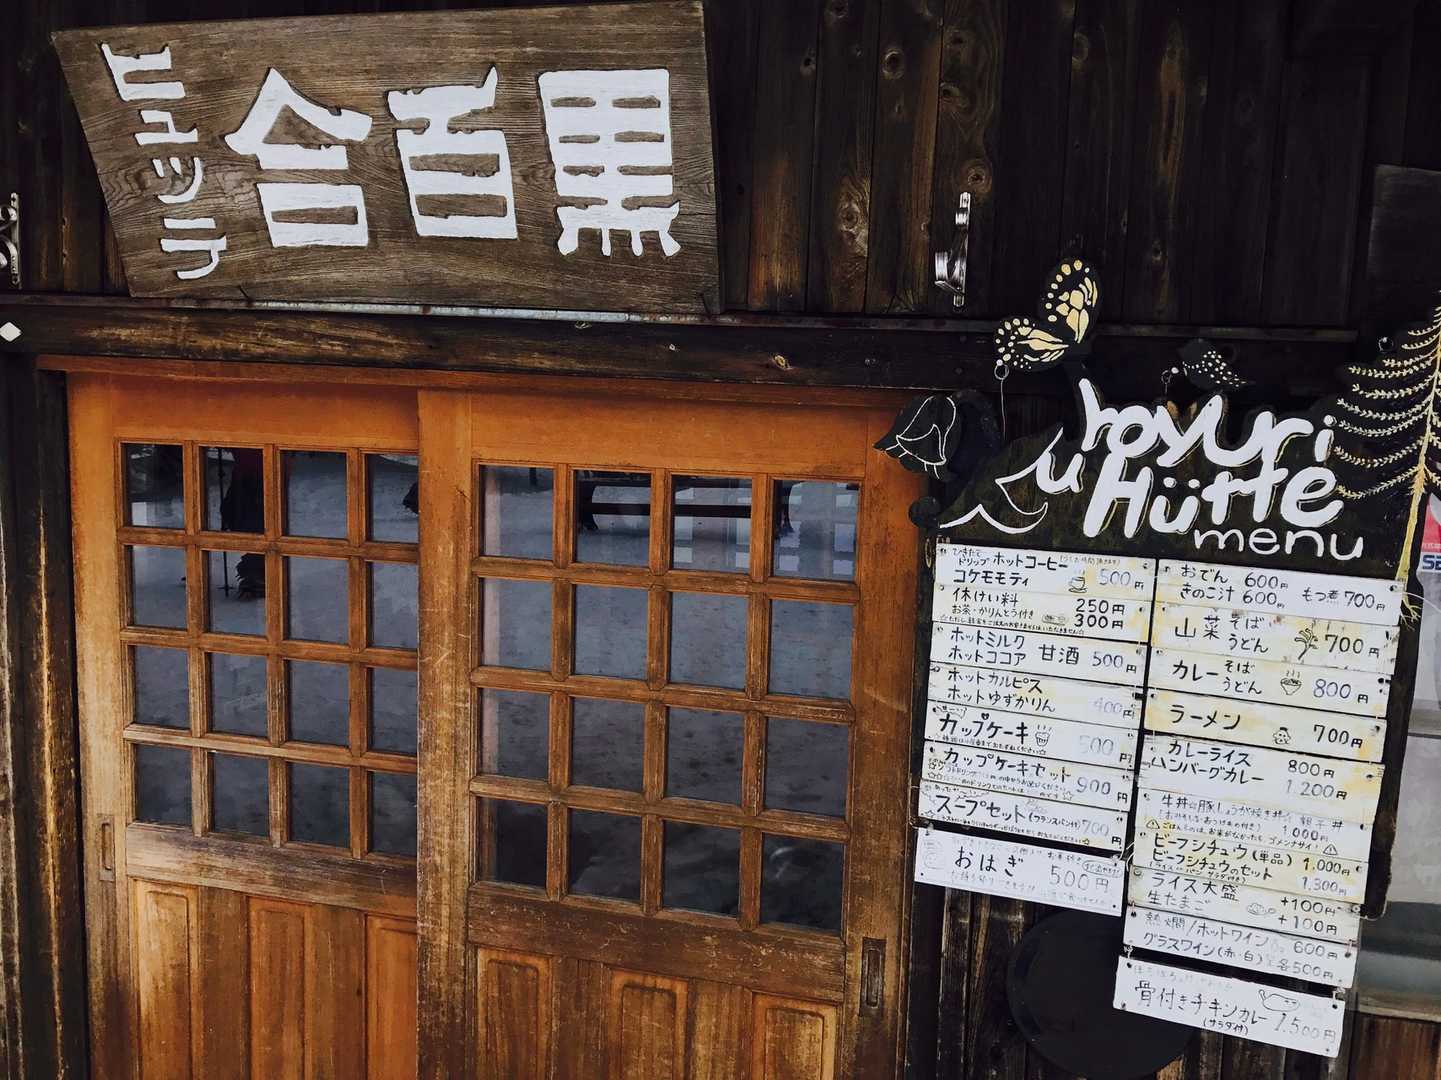 黒百合
ヒュッテ
kuroyuri
Hütte
menu
ひきたて
ドリップ ホットコーヒー
コケモモティ 500円
休けい料 250円
お茶・かりんとう付き 300円
ホットミルク
ホットココア 甘酒 500円
ホットカルピス
ホットゆずかりん 400円
カップケーキ 500円
カップケーキセット 900円
スープセット(フランスパン付) 700円
おはぎ 500円
おでん 600円
きのこ汁 600円 もつ煮 700円
山菜 そば
うどん 700円
カレー そば
うどん 800円
ラーメン 700円
カレーライス 800円
ハンバーグカレー 1,200円
牛丼☆豚しょうが焼き丼☆親子丼
(おみそしる・おつけもの付き) 1,000円
ごはんものは、お米がなかったら、ゴメンナサイ!
ビーフシチュウ(単品) 1,000円
ビーフシチュウのセット 1,300円
ライス大盛 +100円
生たまご +100円
熱燗/ホットワイン 600円
グラスワイン(赤・白) 各500円
骨付きチキンカレー 1,500円
(サラダ付)